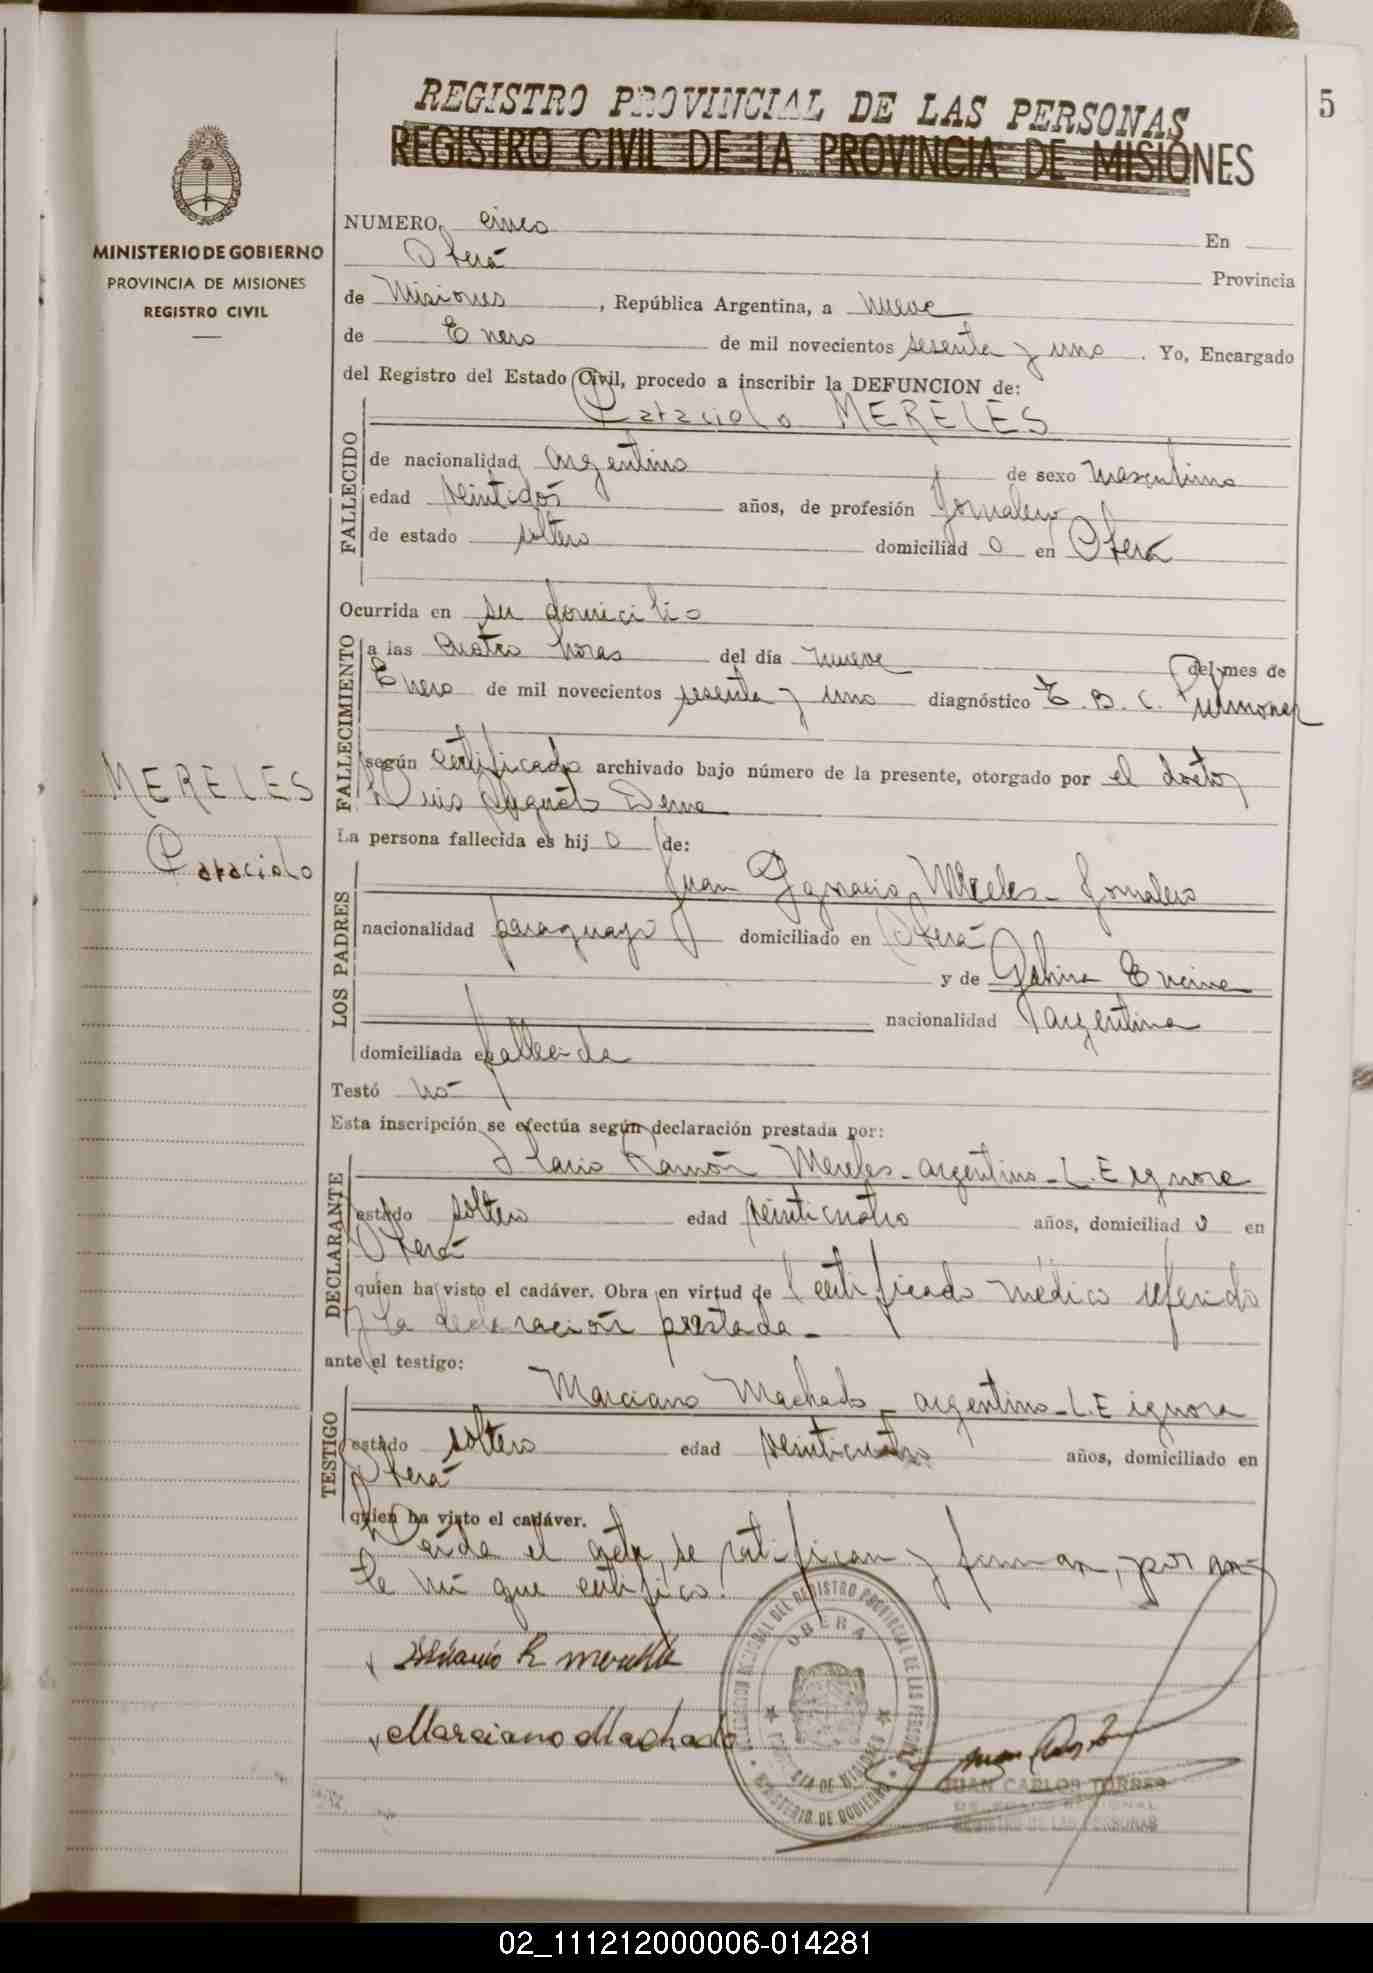 5
REGISTRO PROVINCIAL DE LAS PERSONAS
REGISTRO CIVIL DE LA PROVINCIA DE MISIONES
MINISTERIO DE GOBIERNO
PROVINCIA DE MISIONES
REGISTRO CIVIL
NUMERO cinco En
Oberá Provincia
de Misiones, República Argentina, a nueve
de Enero de mil novecientos sesenta y uno. Yo, Encargado
del Registro del Estado Civil, procedo a inscribir la DEFUNCION de:
MERELES
FALLECIDO
de nacionalidad argentino de sexo masculino
edad veintidos años, de profesión Jornalero
de estado soltero domiciliad o en Oberá
Ocurrida en su domicilio
FALLECIMIENTO
a las cuatro horas del día nueve del mes de
Enero de mil novecientos sesenta y uno diagnóstico T.B.C. Pulmonar
según certificado archivado bajo número de la presente, otorgado por el doctor
Luis Augusto
MERELES
La persona fallecida es hij o de:
LOS PADRES
Juan Ygnacio Mereles - Jornalero
nacionalidad paraguayo domiciliado en Oberá
y de Gabina Encina
nacionalidad argentina
domiciliada en fallecida
Testó no
Esta inscripción se efectúa según declaración prestada por:
DECLARANTE
Ilario Ramón Mereles - argentino - L.E ignora
estado soltero edad veinticuatro años, domiciliad o en
Oberá
quien ha visto el cadáver. Obra en virtud de certificado médico referido
y la declaración prestada -
ante el testigo:
TESTIGO
Marciano Machado - argentino - L.E ignora
estado soltero edad veinticuatro años, domiciliado en
Oberá
quien ha visto el cadáver.
Leída el acta, se ratifican y firman, por an-
te mi que certifico.
Marciano Machado
OBERA
JUAN CARLOS TORRES
DELEGADO REGIONAL
REGISTRO DE LAS PERSONAS
02_111212000006-014281